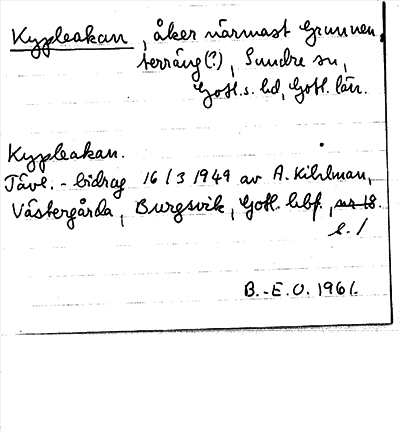 Kypleakan, åker närmast Grunnen,
terräng(?), Sundre sn,
Gotl. s. hd, Gotl. län.
Kypleakan.
Tävl.-bidrag 16/3 1949 av A. Kihlman,
Västergårda, Burgsvik, Gotl. hbf.,
s. 1
B.-E.O. 1961.